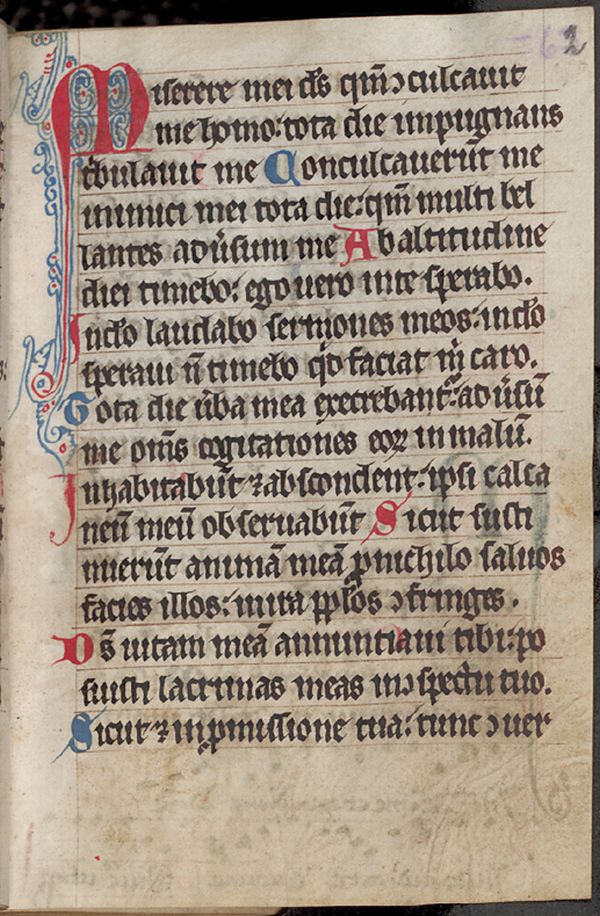 62
Miserere mei ds̄ qm̄ ꝯculcauit
me homo: tota die inpugnans
t̾bulauit me Conculcauerūt me
inimici mei tota die: qm̄ multi bel
lantes adūsum me Ab altitudine
diei timebo: ego uero in te sperabo.
In dō laudabo sermones meos: in dō
speraui n̄ timebo qd̄ faciat m̄ caro.
Tota die ūba mea execrebant̾: adūsū
me om̄s cogitationes eoꝝ in malū.
Inhabitabūt ⁊ abscondent: ipsi calca
neū meū obseruabūt Sicut susti
nuerūt animā meā ꝓ nichilo saluos
facies illos: in ira ppl̄os ꝯfringes.
Ds̄ uitam meā annuntiaui tibi: po
suisti lacrimas meas in ꝯspectu tuo.
Sicut ⁊ in ꝓmissione tua: tunc ꝯuer